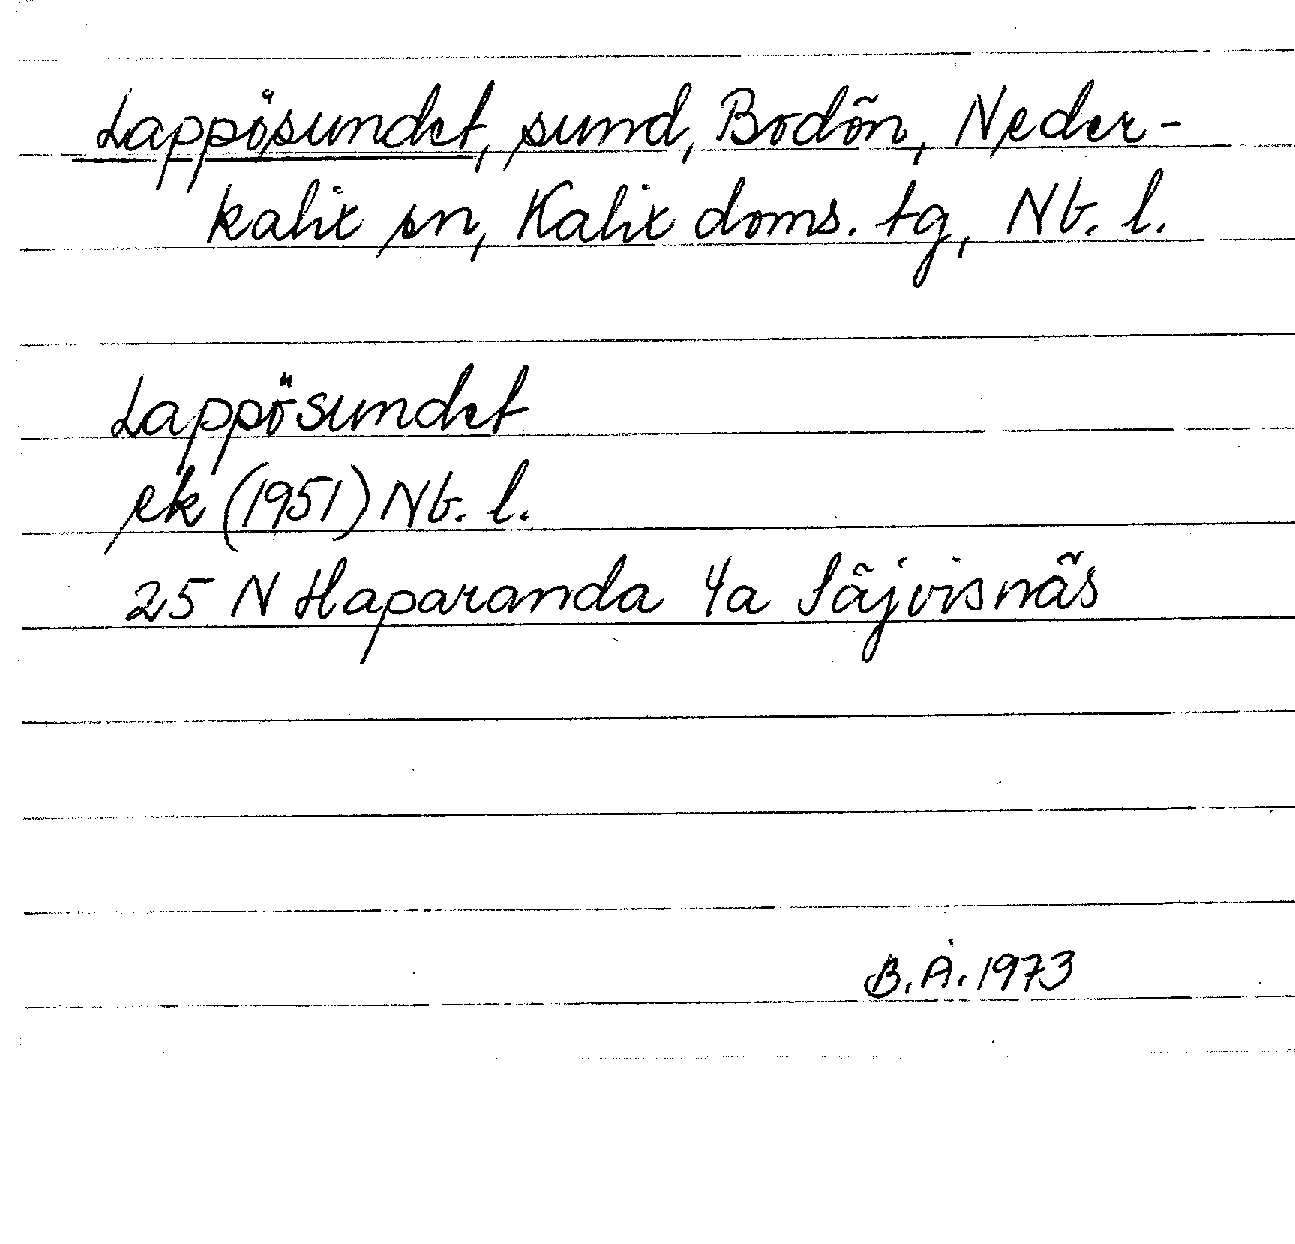 Lappösundet, sund, Bodön, Neder-
kalix sn, Kalix doms. tg, Nb. l.
Lappösundet
ek (1951) Nb. l.
25 N Haparanda 4a Säjvisnäs
B.Å. 1973